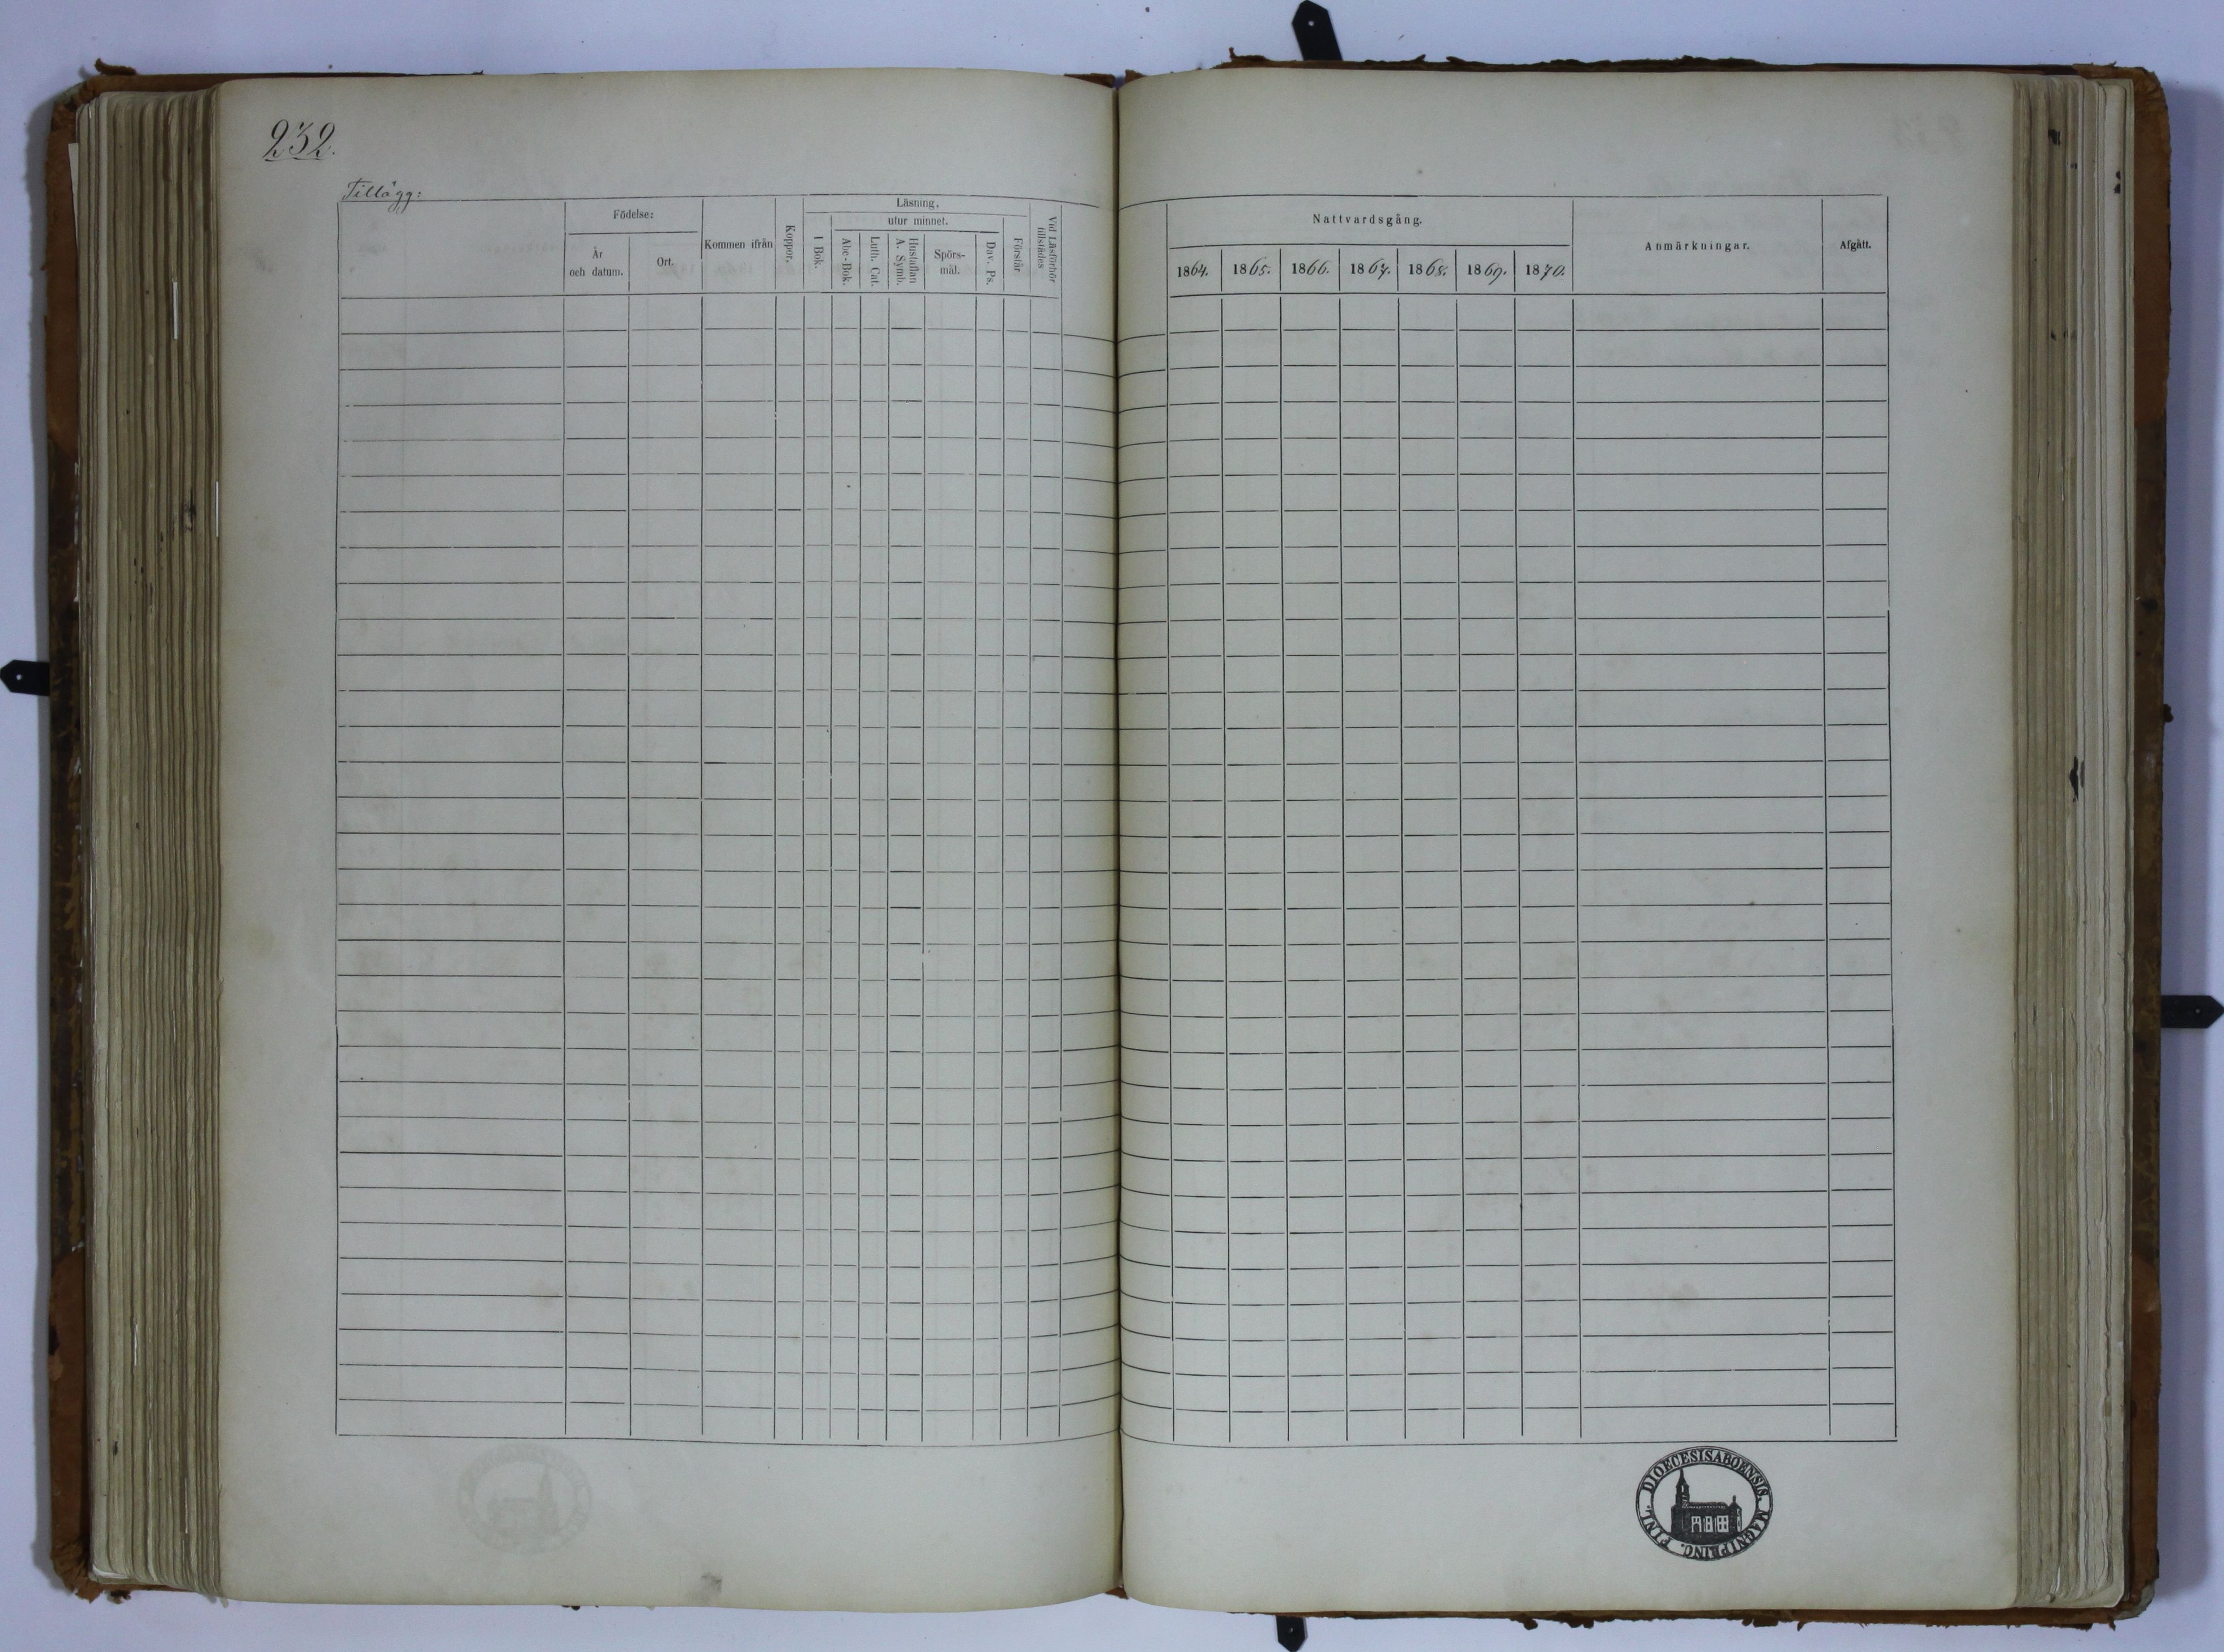 232.
Tillägg:
Födelse:
År
och datum.
Ort.
Kommen ifrån
Koppor.
Läsning.
I Bok.
utur minnet.
Abc-Bok.
Luth. Cat.
Hustaflan
A. Symb.
Spörs-
mål.
Dav. Ps.
Förstår
Vid Läsförhör
tillstädes
Nattvardsgång.
1864.
1865.
1866.
1867.
1868.
1869.
1870.
Anmärkningar.
Afgått.
DIOECESIS ABOENSIS. MAGNI PRINC. FINL.